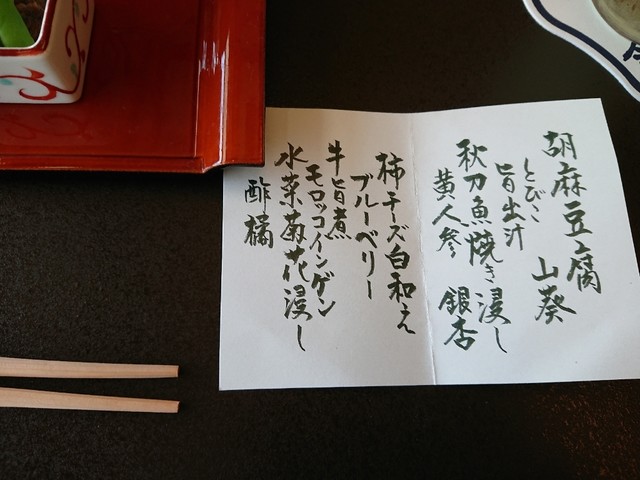 胡麻豆腐
とびこ 山葵
旨出汁
秋刀魚焼き浸し
黄人参 銀杏
柿チーズ白和え
ブルーベリー
牛旨煮
モロッコインゲン
水菜菊花浸し
酢橘